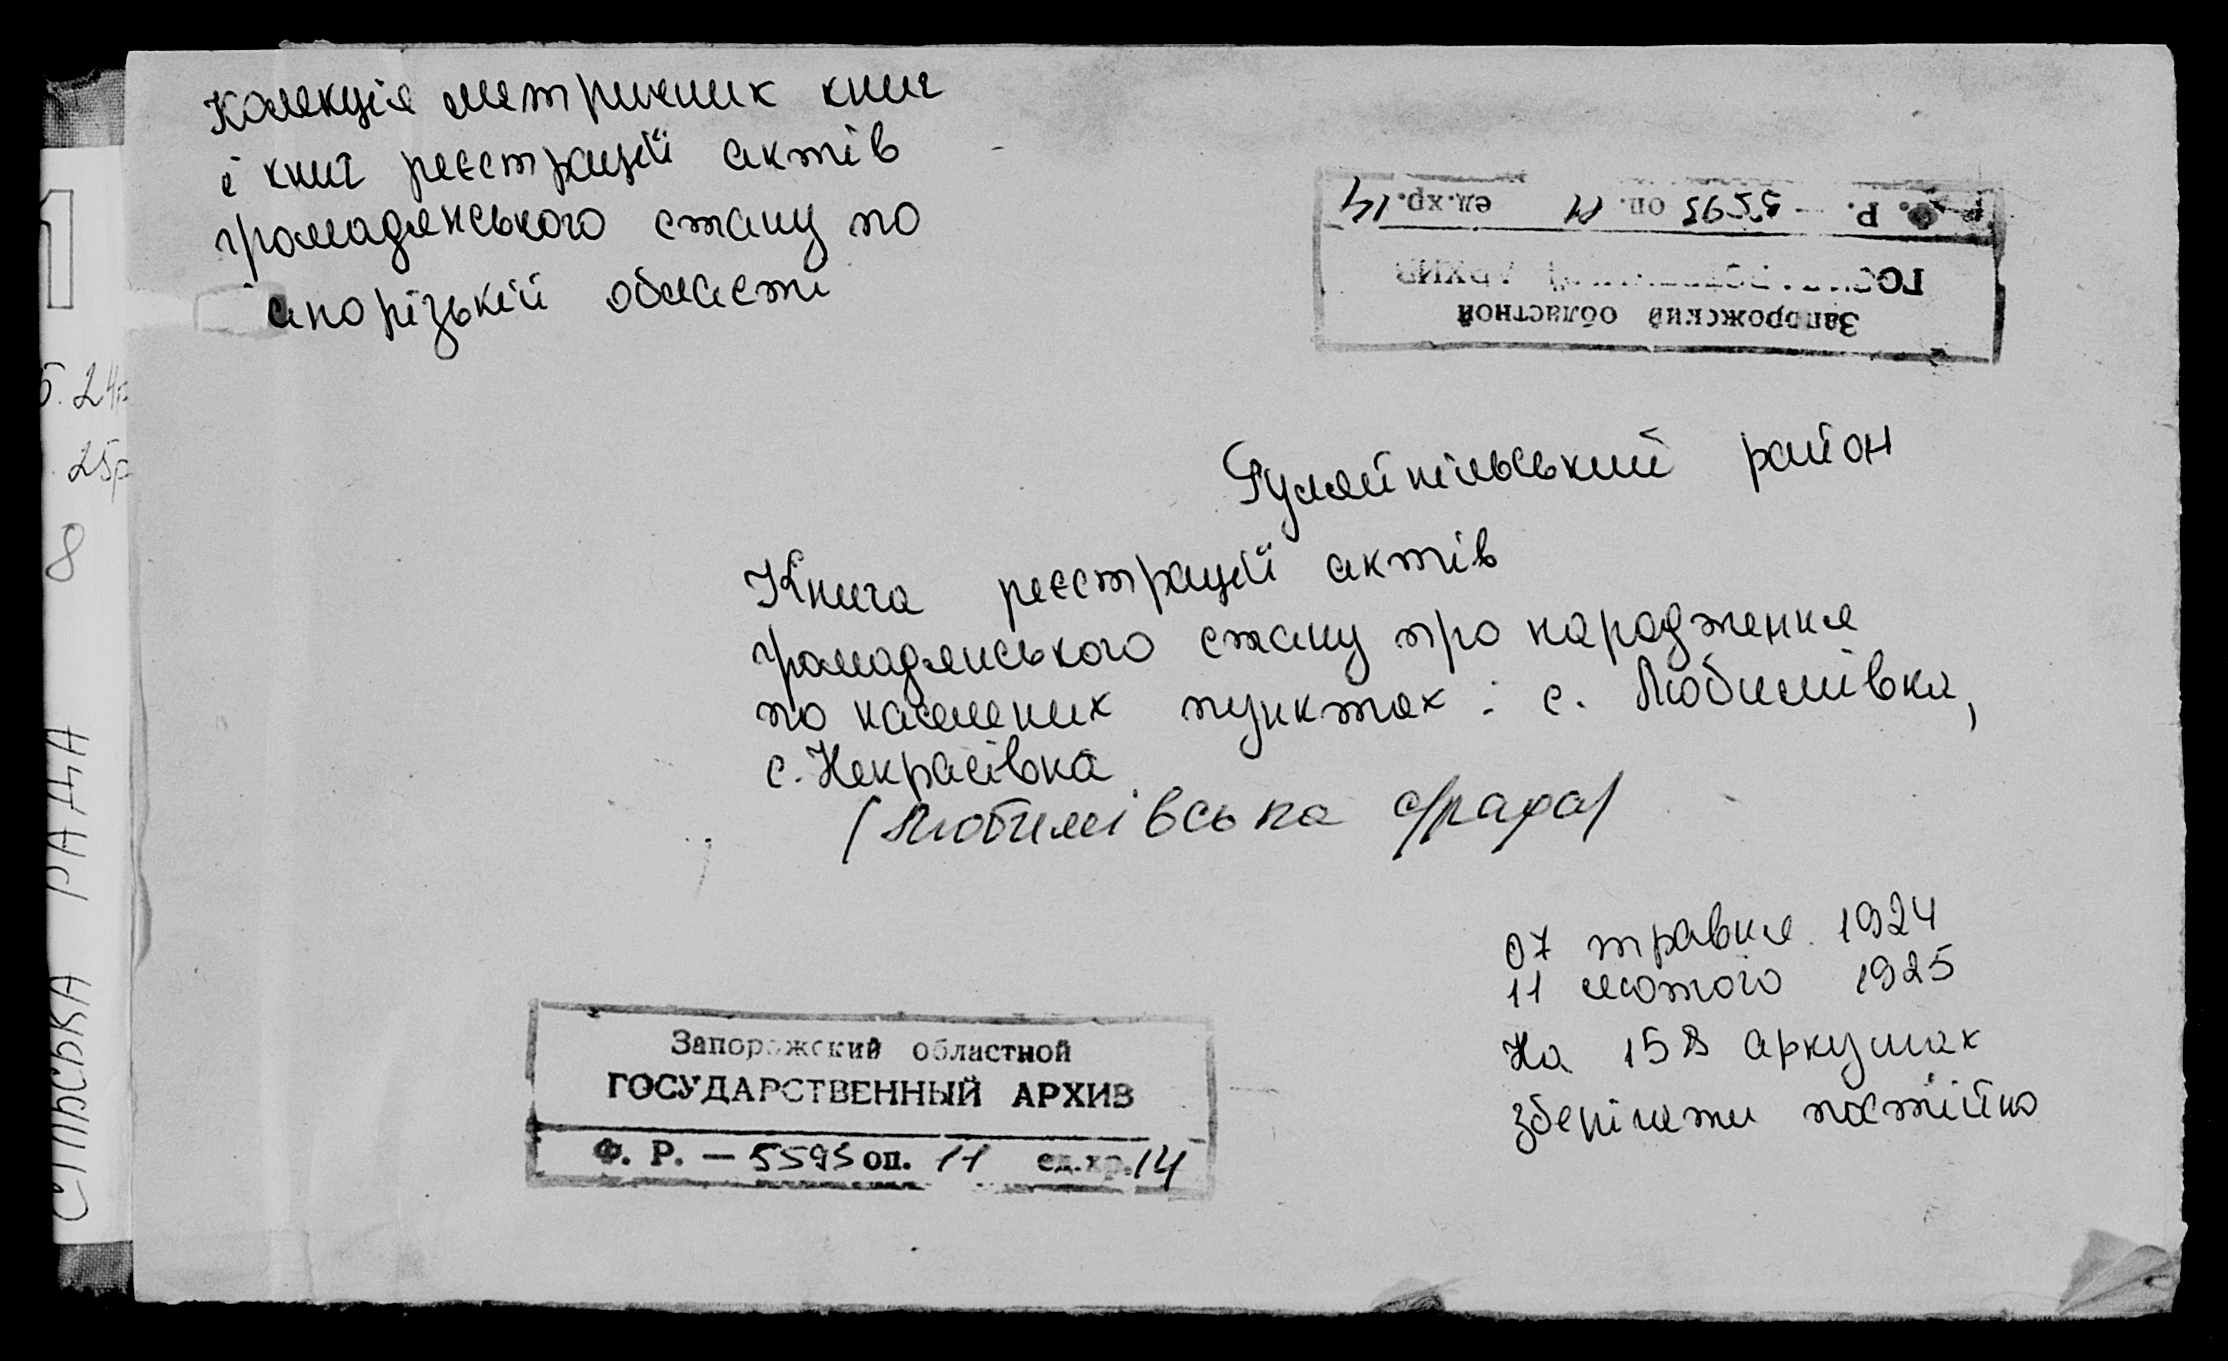 Колекція метричних книг
і книг реєстрації актів
громадянського стану по
апорізькій області
Ф. Р. — 5593 оп. 11 ед.хр. 14
АРХИВ
Запорожский областной
Гуляйпільський район
Книга реєстрації актів
громадянського стану про народження
по населених пунктах: с. Любимівка,
с. Некрасівка
/Любимівська с/рада/
07 травня 1924
11 лютого 1925
На 158 аркушах
зберігати постійно
Запорожский областной
ГОСУДАРСТВЕННЫЙ АРХИВ
Ф. Р. — 5593 оп. 11 ед.хр. 14
1
24р
25р
8
СІЛЬСЬКА РАДА